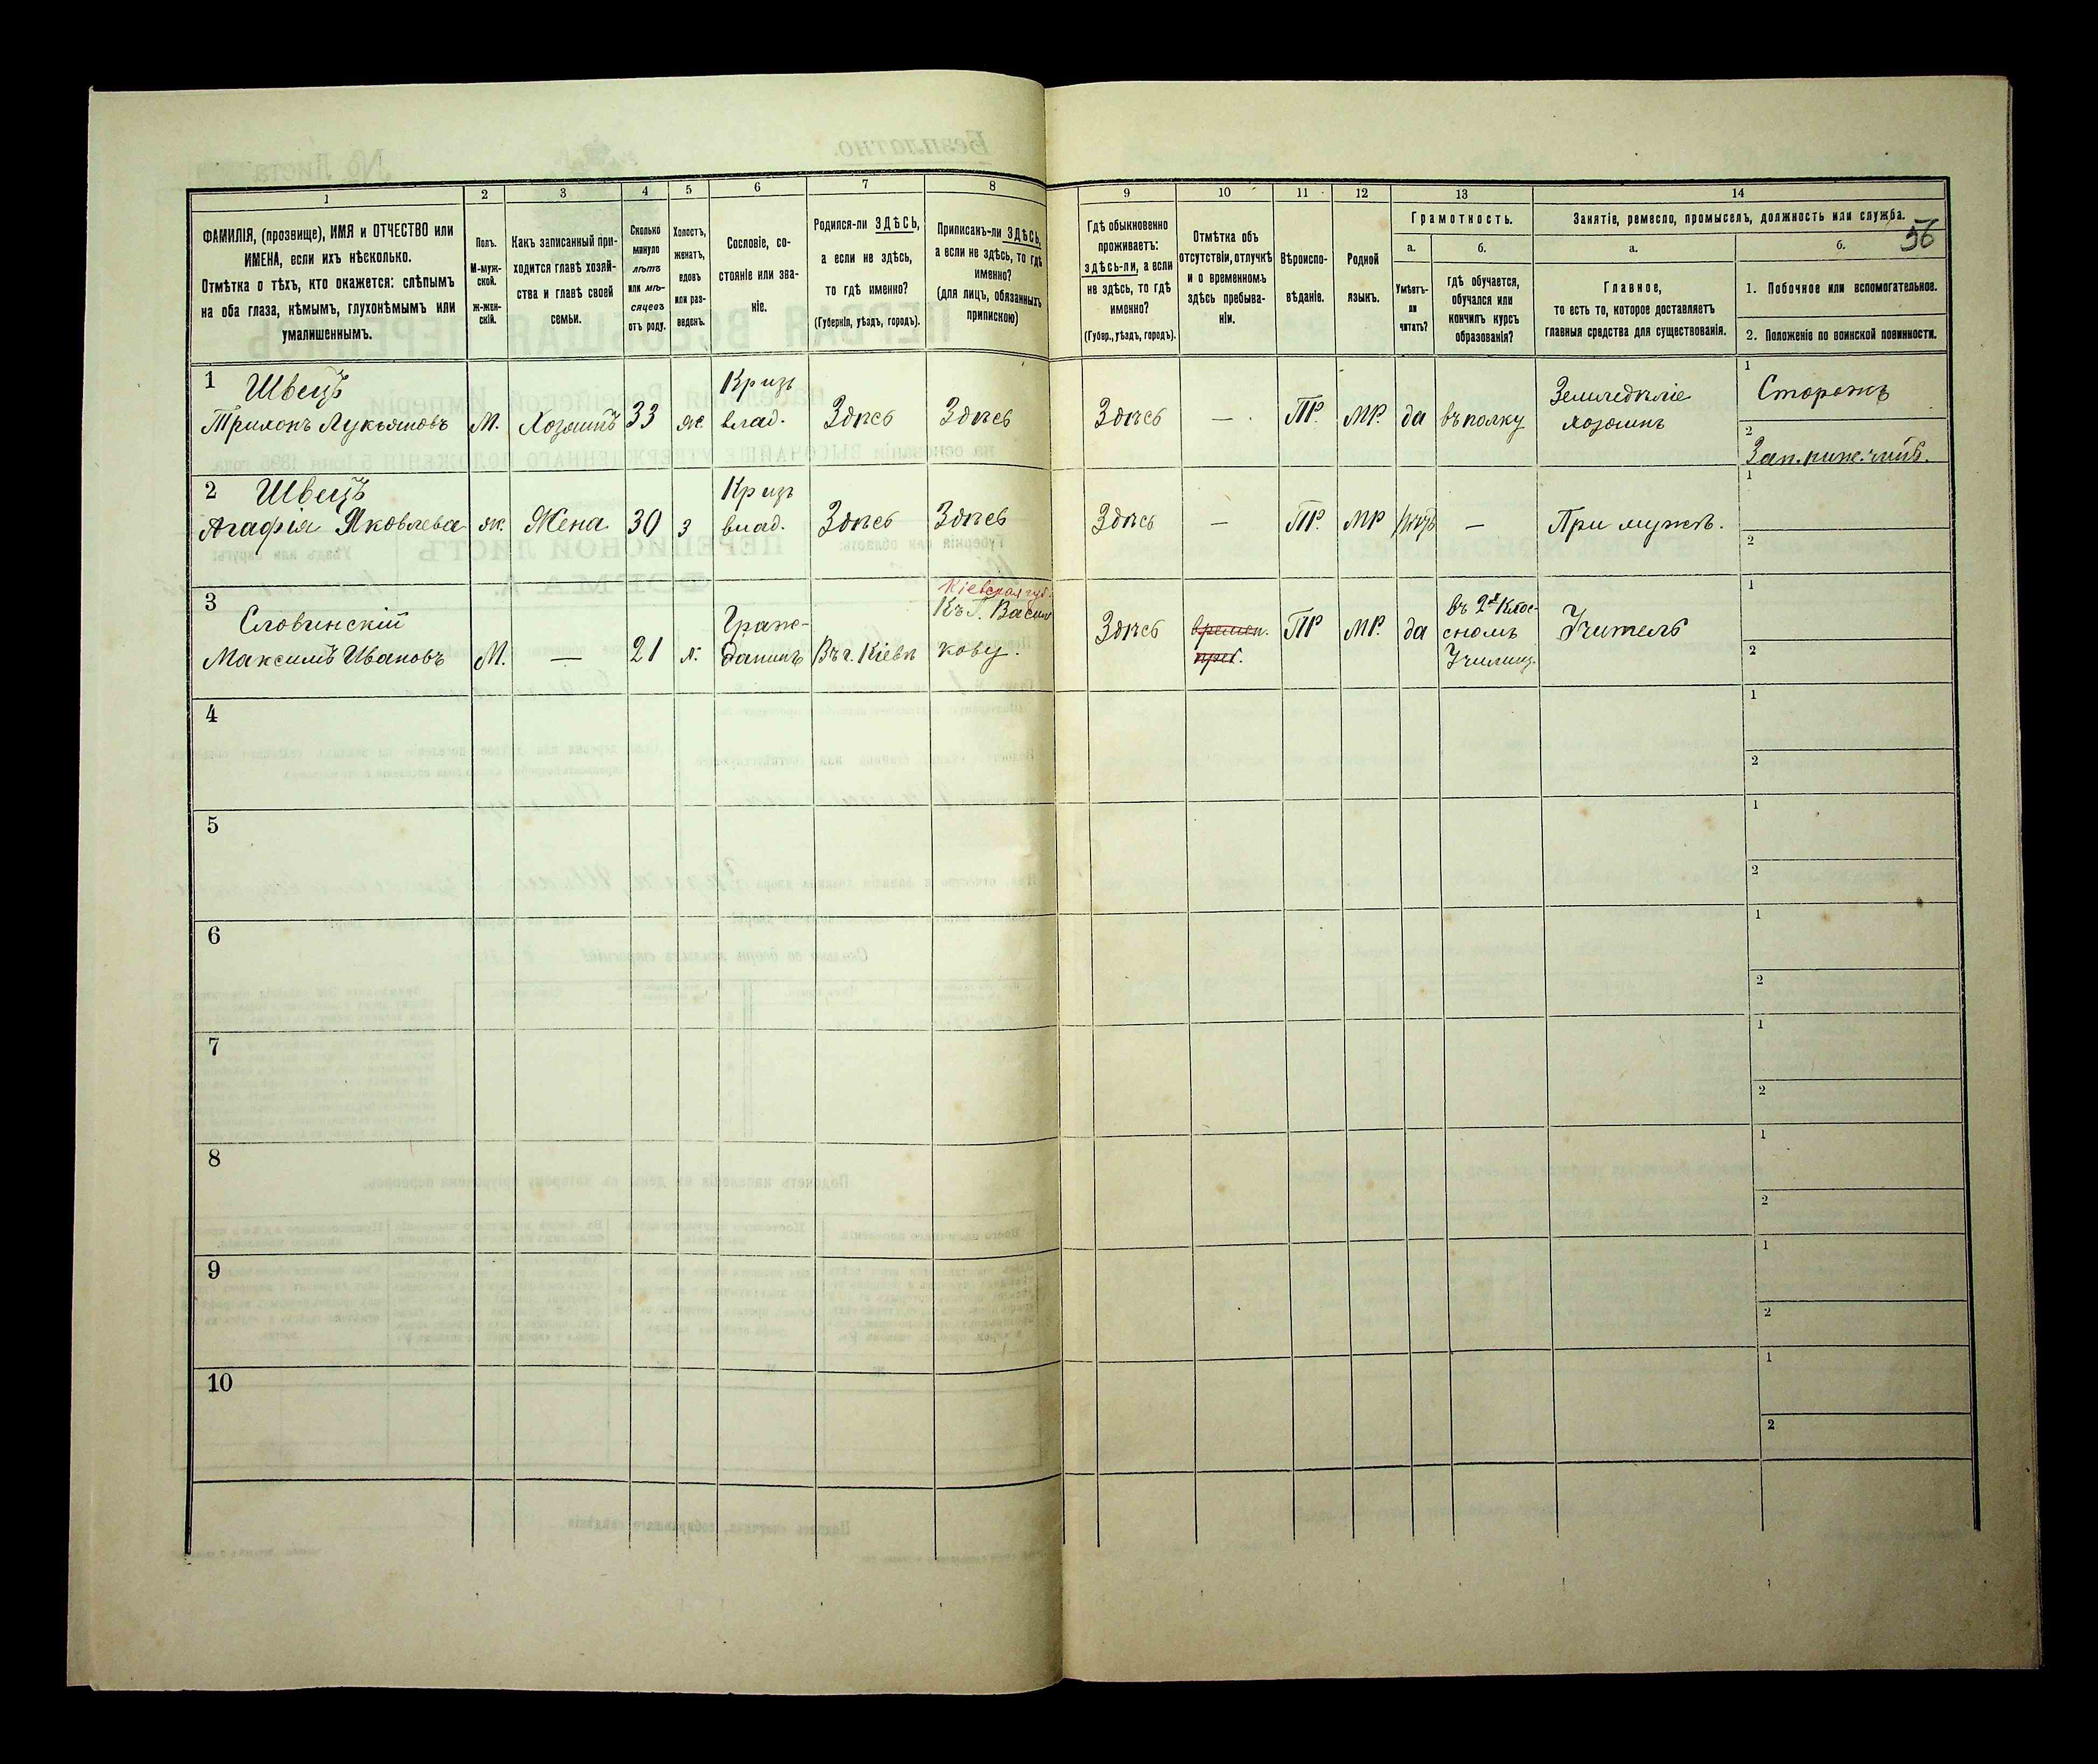 1
2
3
4
5
6
7
8
ФАМИЛІЯ, (прозвище), ИМЯ и ОТЧЕСТВО или
ИМЕНА, если ихъ нѣсколько.
Отмѣтка о тѣхъ, кто окажется: слѣпымъ
на оба глаза, нѣмымъ, глухонѣмымъ или
умалишеннымъ.
Полъ.
М-муж-
ской.
ж-жен-
скій.
Какъ записанный при-
ходится главѣ хозяй-
ства и главѣ своей
семьи.
Сколько
минуло
лѣтъ
или мѣ-
сяцевъ
отъ роду.
Холостъ,
женатъ,
вдовъ
или раз-
веденъ.
Сословіе, со-
стояніе или зва-
ніе.
Родился-ли ЗДѢСЬ,
а если не здѣсь,
то гдѣ именно?
(Губернія, уѣздъ, городъ).
Приписанъ-ли ЗДѢСЬ,
а если не здѣсь, то гдѣ
именно?
(для лицъ, обязанныхъ
припискою)
9
10
11
12
13
14
Гдѣ обыкновенно
проживаетъ:
здѣсь-ли, а если
не здѣсь, то гдѣ
именно?
(Губер., уѣздъ, городъ).
Отмѣтка объ
отсутствіи, отлучкѣ
и о временномъ
здѣсь пребыва-
ніи.
Вѣроиспо-
вѣданіе.
Родной
языкъ.
Грамотность.
а.
б.
Умѣетъ-
ли
читать?
гдѣ обучается,
обучался или
кончилъ курсъ
образованія?
Занятіе, ремесло, промыселъ, должность или служба.
56
а.
б.
Главное,
то есть то, которое доставляетъ
главныя средства для существованія.
1. Побочное или вспомогательное.
2. Положеніе по воинской повинности.
1
Швецъ
Трихонъ Лукьяновъ
М.
Хозяинъ
33
ж.
Крыз
влад.
Здѣсь
Здѣсь
Здѣсь
—
ПР.
МР.
да
въ полку
Земледѣліе
хозяинъ
1
Сторожъ
2
2
Швецъ
Агафія Яковлева
ж.
Жена
30
з
Крыз
влад.
Здѣсь
Здѣсь
Здѣсь
—
ПР.
МР
—
При мужѣ.
1
2
3
Словинскій
Максимъ Ивановъ
М.
—
21
х.
Граж-
данинъ
Въ г. Кіевѣ
Кіевская губ.
Къ Г. Василь
кову.
Здѣсь
времен.
преб.
ПР
МР.
да
въ 2х Клас-
сномъ
Училищ.
Учитель
1
2
4
1
2
5
1
2
6
1
2
7
1
2
8
1
2
9
1
2
10
1
2